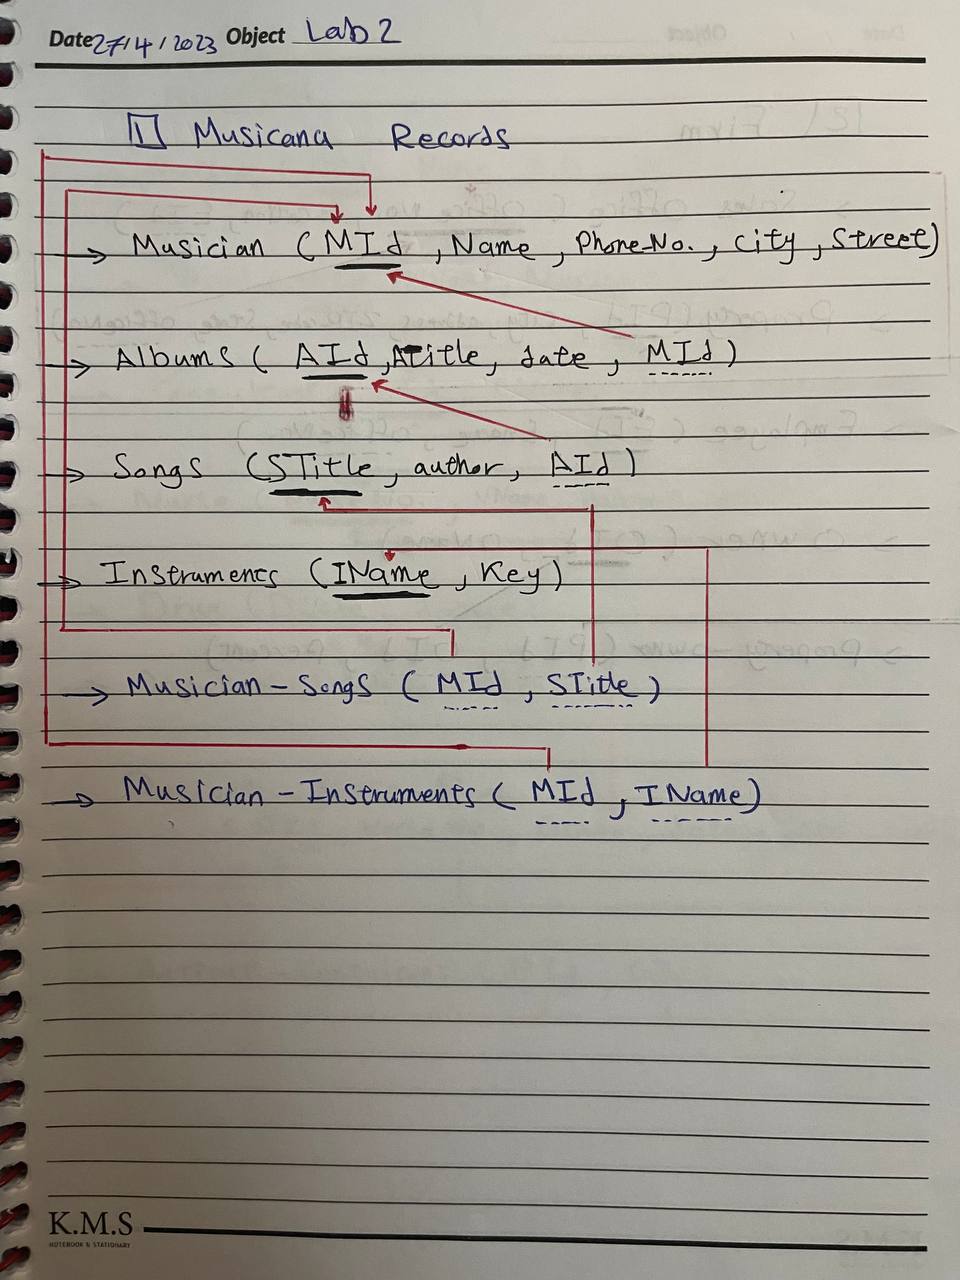 Date 27/4/2023 Object Lab 2
1 Musicana Records
→ Musician (MId, Name, Phone-No., city, street)
→ Albums (AId, ATitle, date, MId)
→ Songs (STitle, author, AId)
→ Instruments (IName, Key)
→ Musician-Songs (MId, STitle)
→ Musician-Instruments (MId, IName)
K.M.S
NOTEBOOK & STATIONARY